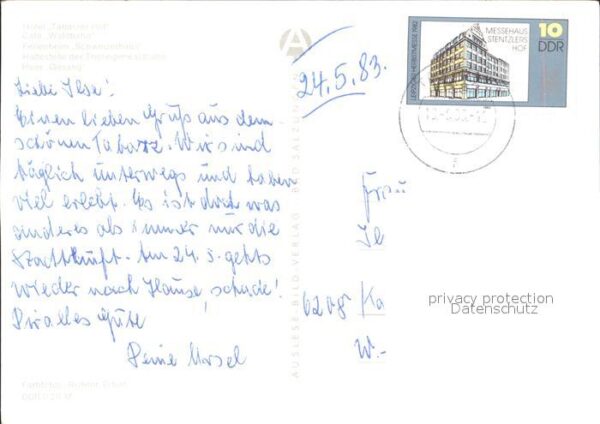 Hotel „Tabarzer Hof“
Café „Waldbaude“
Ferienheim „Schwarzes Haus“
Haltestelle der Thüringerwaldbahn
24.5.83.
MESSEHAUS
STENTZLERS
HOF
10
DDR
LEIPZIGER HERBSTMESSE 1982
Liebe Ilse!
Einen lieben Gruß aus dem
schönen Tabarz. Wir sind
täglich unterwegs und haben
viel erlebt. Es ist doch was
anderes als immer nur die
Stadtluft. Am 24. 5. gehts
wieder nach Hause, schade!
Dir alles Gute,
Deine Ursel
Frau
Il
6208 Ka
W.-
AUSLESE-BILD-VERLAG BAD SALZUNGEN
privacy protection
Datenschutz
Farbfotos: